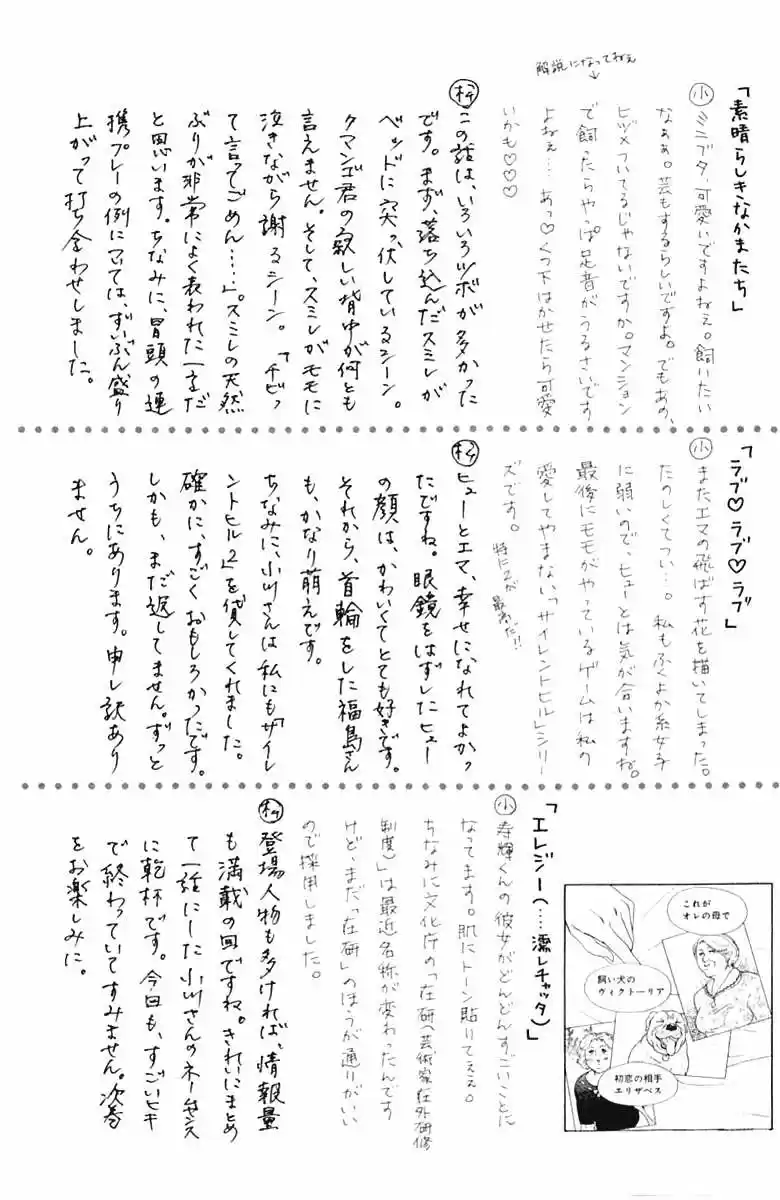 「素晴らしきなかまたち」
解説になってねぇ
↓
小 ミニブタ、可愛いですよねえ。飼いたい
なぁぁ。芸もするらしいですよ。でもあの、
ヒヅメついてるじゃないですか。マンション
で飼ったらやっぱ足音がうるさいです
よねぇ…。あっ♡くつ下はかせたら可愛
いかも♡♡♡
この話は、いろいろツボが多かった
です。まず、落ち込んだスミレが
ベッドに突っ伏しているシーン。
クマンゴ君の寂しい背中が何とも
言えません。そして、スミレがモモに
泣きながら謝るシーン。「チビっ
て言ってごめん……」。スミレの天然
ぶりが非常によく表われた一言だ
と思います。ちなみに、冒頭の連
携プレーの例については、ずいぶん盛り
上がって打ち合わせしました。
「ラブ♡ラブ♡ラブ」
小 またエマの飛ばす花を描いてしまった。
たのしくてつい…。私もふくよか系女子
に弱いので、ヒューとは気が合いますね。
最後にモモがやっているゲームは私の
愛してやまない「サイレントヒル」シリー
ズです。
特に2が
最高だ!!
ヒューとエマ、幸せになれてよかっ
たですね。眼鏡をはずしたヒュー
の顔は、かわいくてとても好きです。
それから、首輪をした福島さん
も、かなり萌えです。
ちなみに、小川さんは私にも「サイレ
ントヒル2」を貸してくれました。
確かに、すごくおもしろかったです。
しかも、まだ返してません。ずっと
うちにあります。申し訳あり
ません。
「エレジー(…濡レチャッタ)」
小 寿輝くんの彼女がどんどんすごいことに
なってます。肌にトーン貼りてぇぇ。
ちなみに文化庁の「在研(芸術家在外研修
制度)」は最近名称が変わったんです
けど、まだ「在研」のほうが通りがいい
ので採用しました。
登場人物も多ければ、情報量
も満載の回ですね。きれいにまとめ
て一話にした小川さんのネームセンス
に乾杯です。今回も、すごいヒキ
で終わっていてすみません。次巻
をお楽しみに。
これが
オレの母で
飼い犬の
ヴィクトーリア
初恋の相手
エリザベス